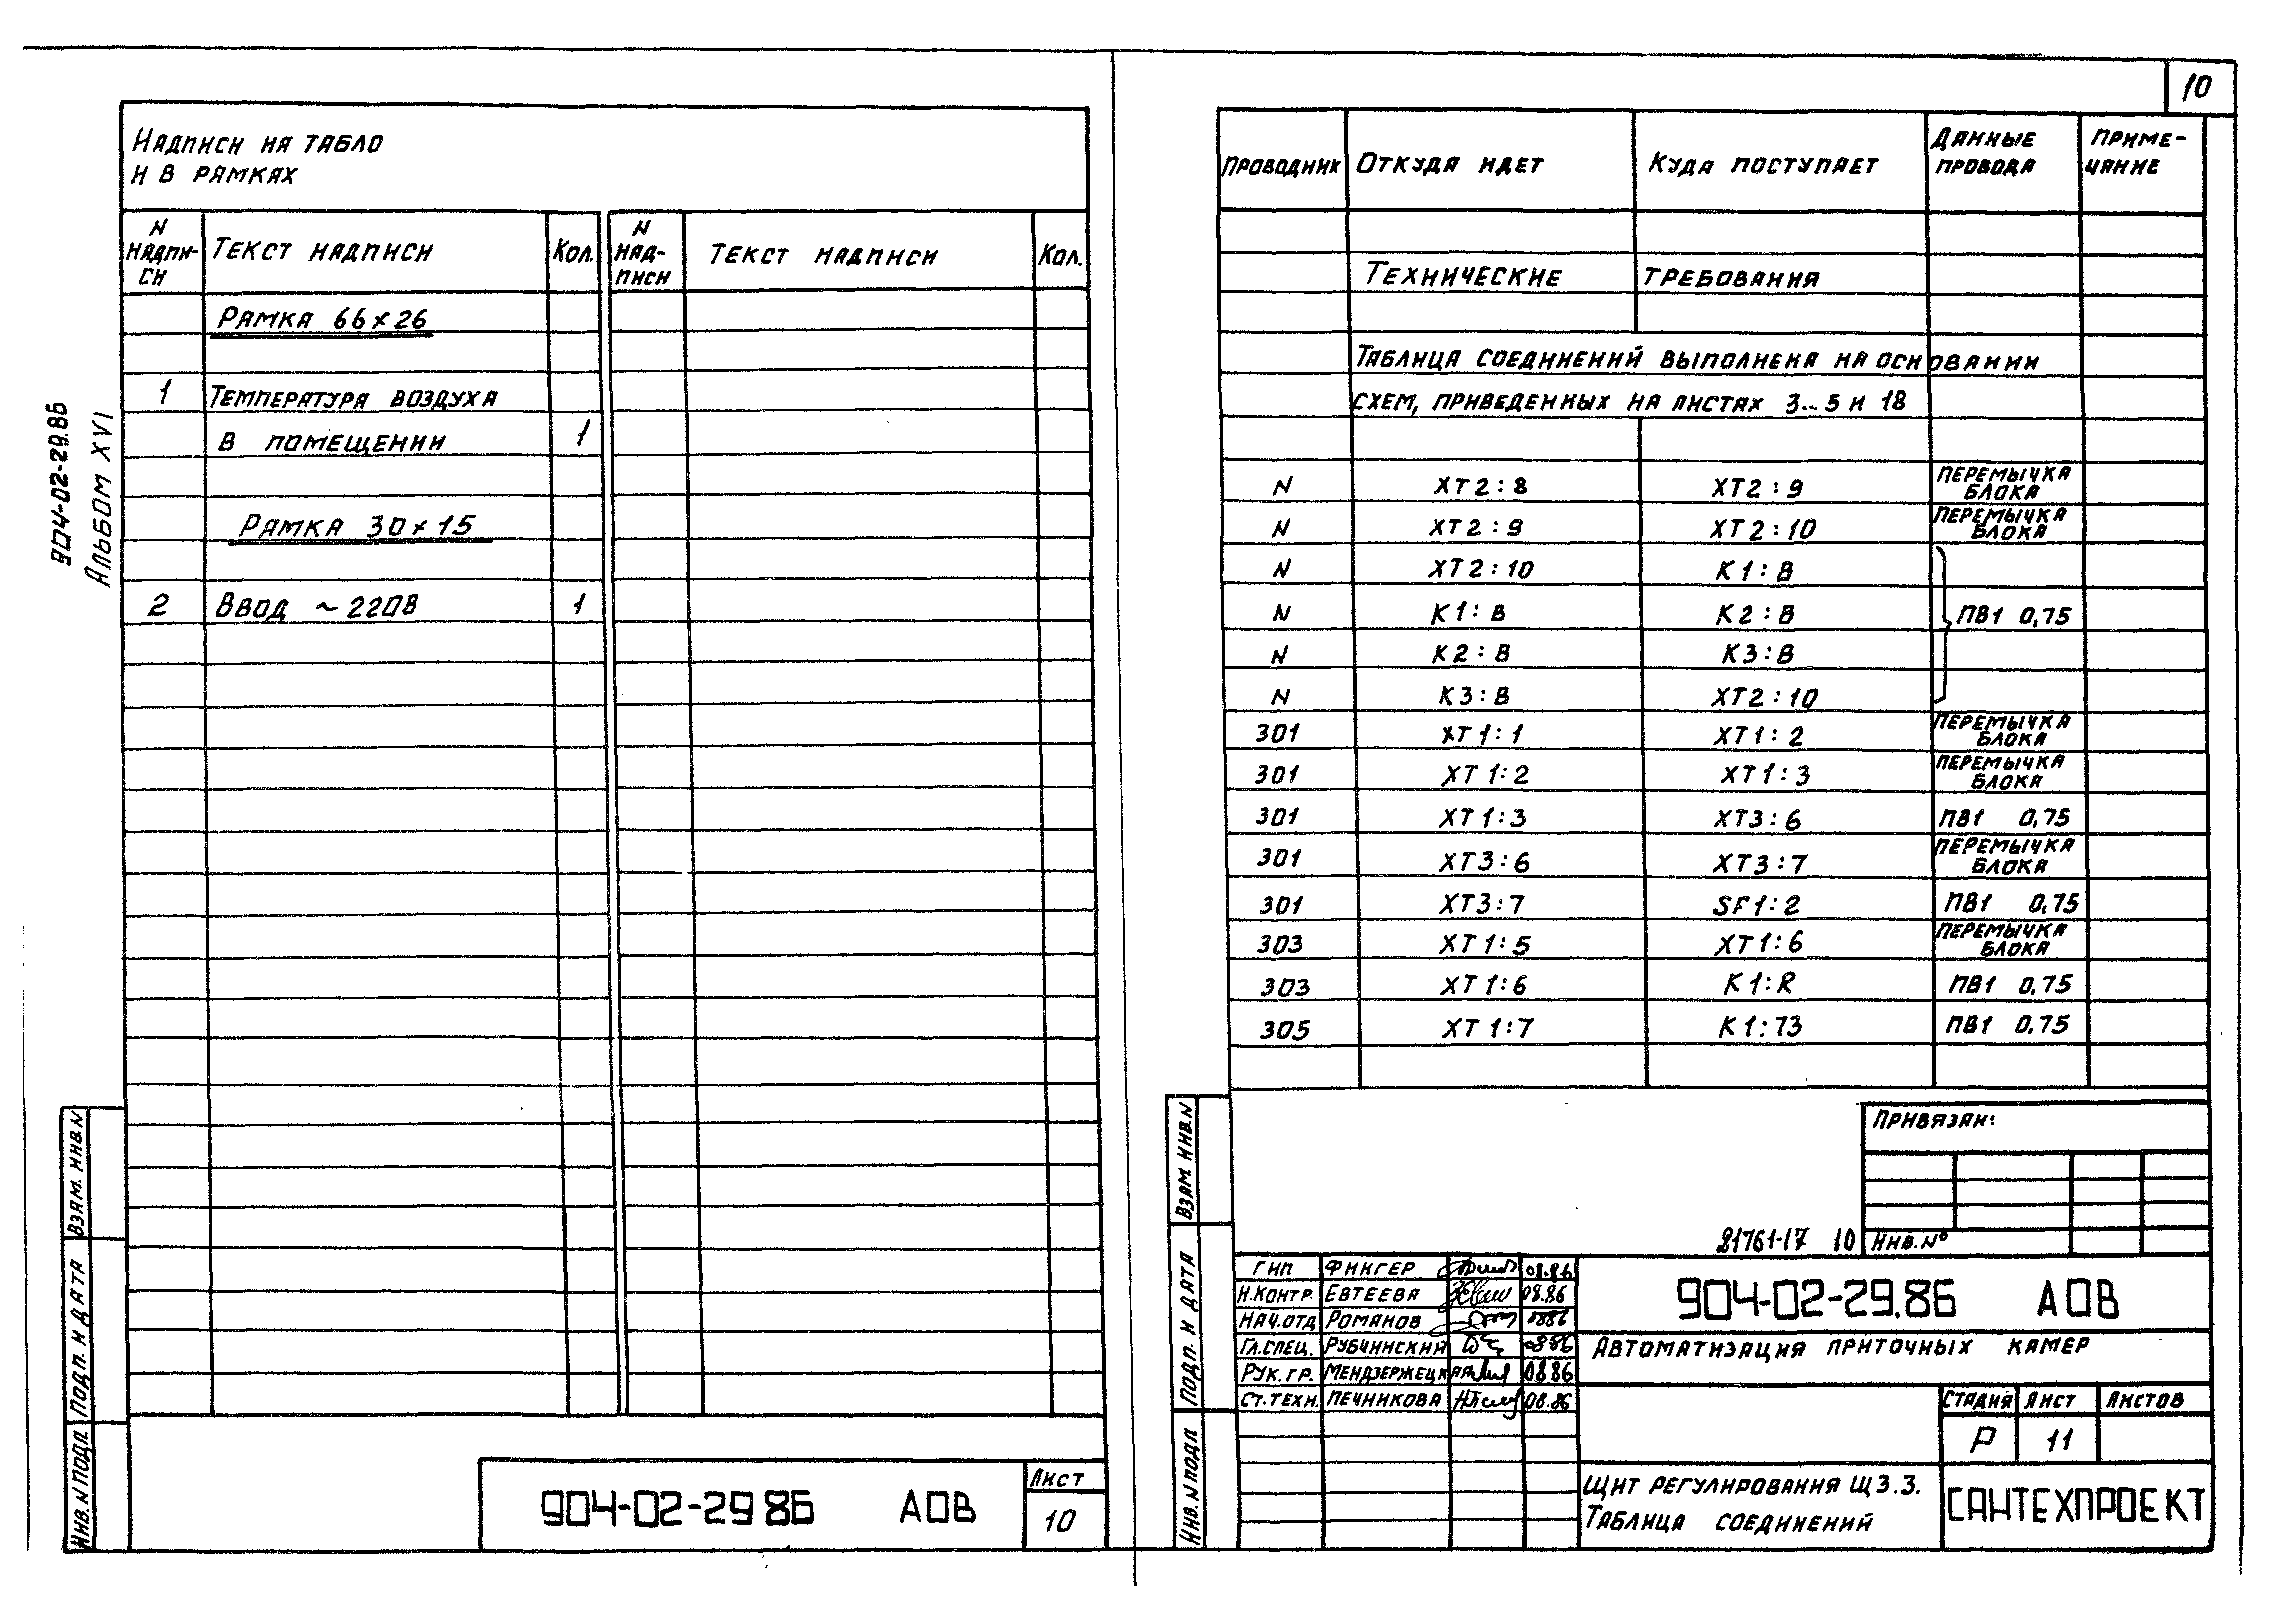 10
904-02-29.86
Альбом XVI
Надписи на табло
и в рамках
N надпи-си Текст надписи Кол. N над-писи Текст надписи Кол.
Рамка 66×26
1 Температура воздуха
в помещении 1
Рамка 30×15
2 Ввод ~220В 1
Взам. инв. N
Подп. и дата
Инв. N подл.
904-02-29 86 АОВ
Лист
10
Проводник Откуда идет Куда поступает Данные провода Приме-чание
Технические требования
Таблица соединений выполнена на основании
схем, приведенных на листах 3...5 и 18
N XT2:8 XT2:9 Перемычка блока
N XT2:9 XT2:10 Перемычка блока
N XT2:10 K1:B
N K1:B K2:B ПВ1 0,75
N K2:B K3:B
N K3:B XT2:10
301 XT1:1 XT1:2 Перемычка блока
301 XT1:2 XT1:3 Перемычка блока
301 XT1:3 XT3:6 ПВ1 0,75
301 XT3:6 XT3:7 Перемычка блока
301 XT3:7 SF1:2 ПВ1 0,75
303 XT1:5 XT1:6 Перемычка блока
303 XT1:6 K1:R ПВ1 0,75
305 XT1:7 K1:73 ПВ1 0,75
Взам. инв. N
Подп. и дата
Инв. N подл
Привязан:
21761-17 10
Инв. №
ГИП Фингер 08.86
Н.контр. Евтеева 08.86
Нач.отд Романов 0886
Гл.спец. Рубчинский 0886
Рук.гр. Мендзержецкая 0886
Ст.техн. Печникова 08.86
904-02-29.86 АОВ
Автоматизация приточных камер
Стадия Лист Листов
Р 11
Щит регулирования Щ3.3.
Таблица соединений
САНТЕХПРОЕКТ